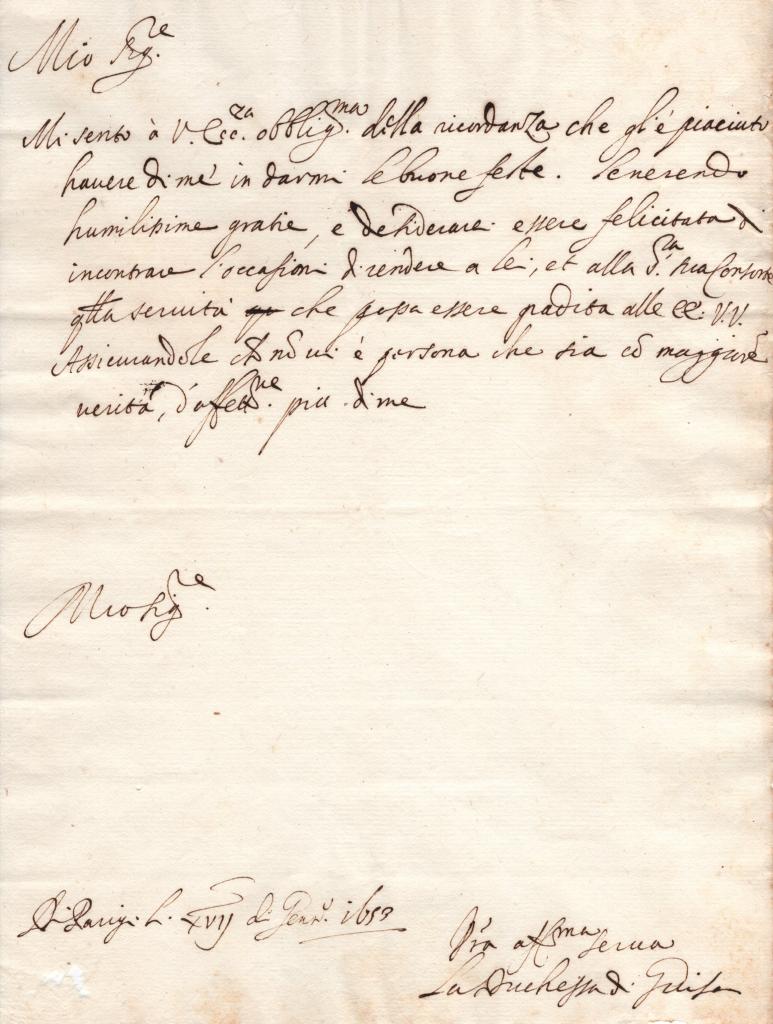 Mio Sig.re
Mi sento à V. Ecc.za obblig.ma della ricordanza che gl'é piaciuto
havere di me in darmi le buone feste. Le ne rendo
humilissime gratie, e desiderarei essere felicitata di
incontrare l'occasioni di rendere a lei, et alla S.ra sua Consorte
q̃lla servità che possa essere gradita alle EE. VV.
Assicurandole che nõ vi é persona che sia cõ maggiore
verità, d'affett.ne piu di me
Mio Sig.re
Di Parigi li XVIJ di Genn.o 165
V'ra aff.ma serva
La Duchessa di Guisa